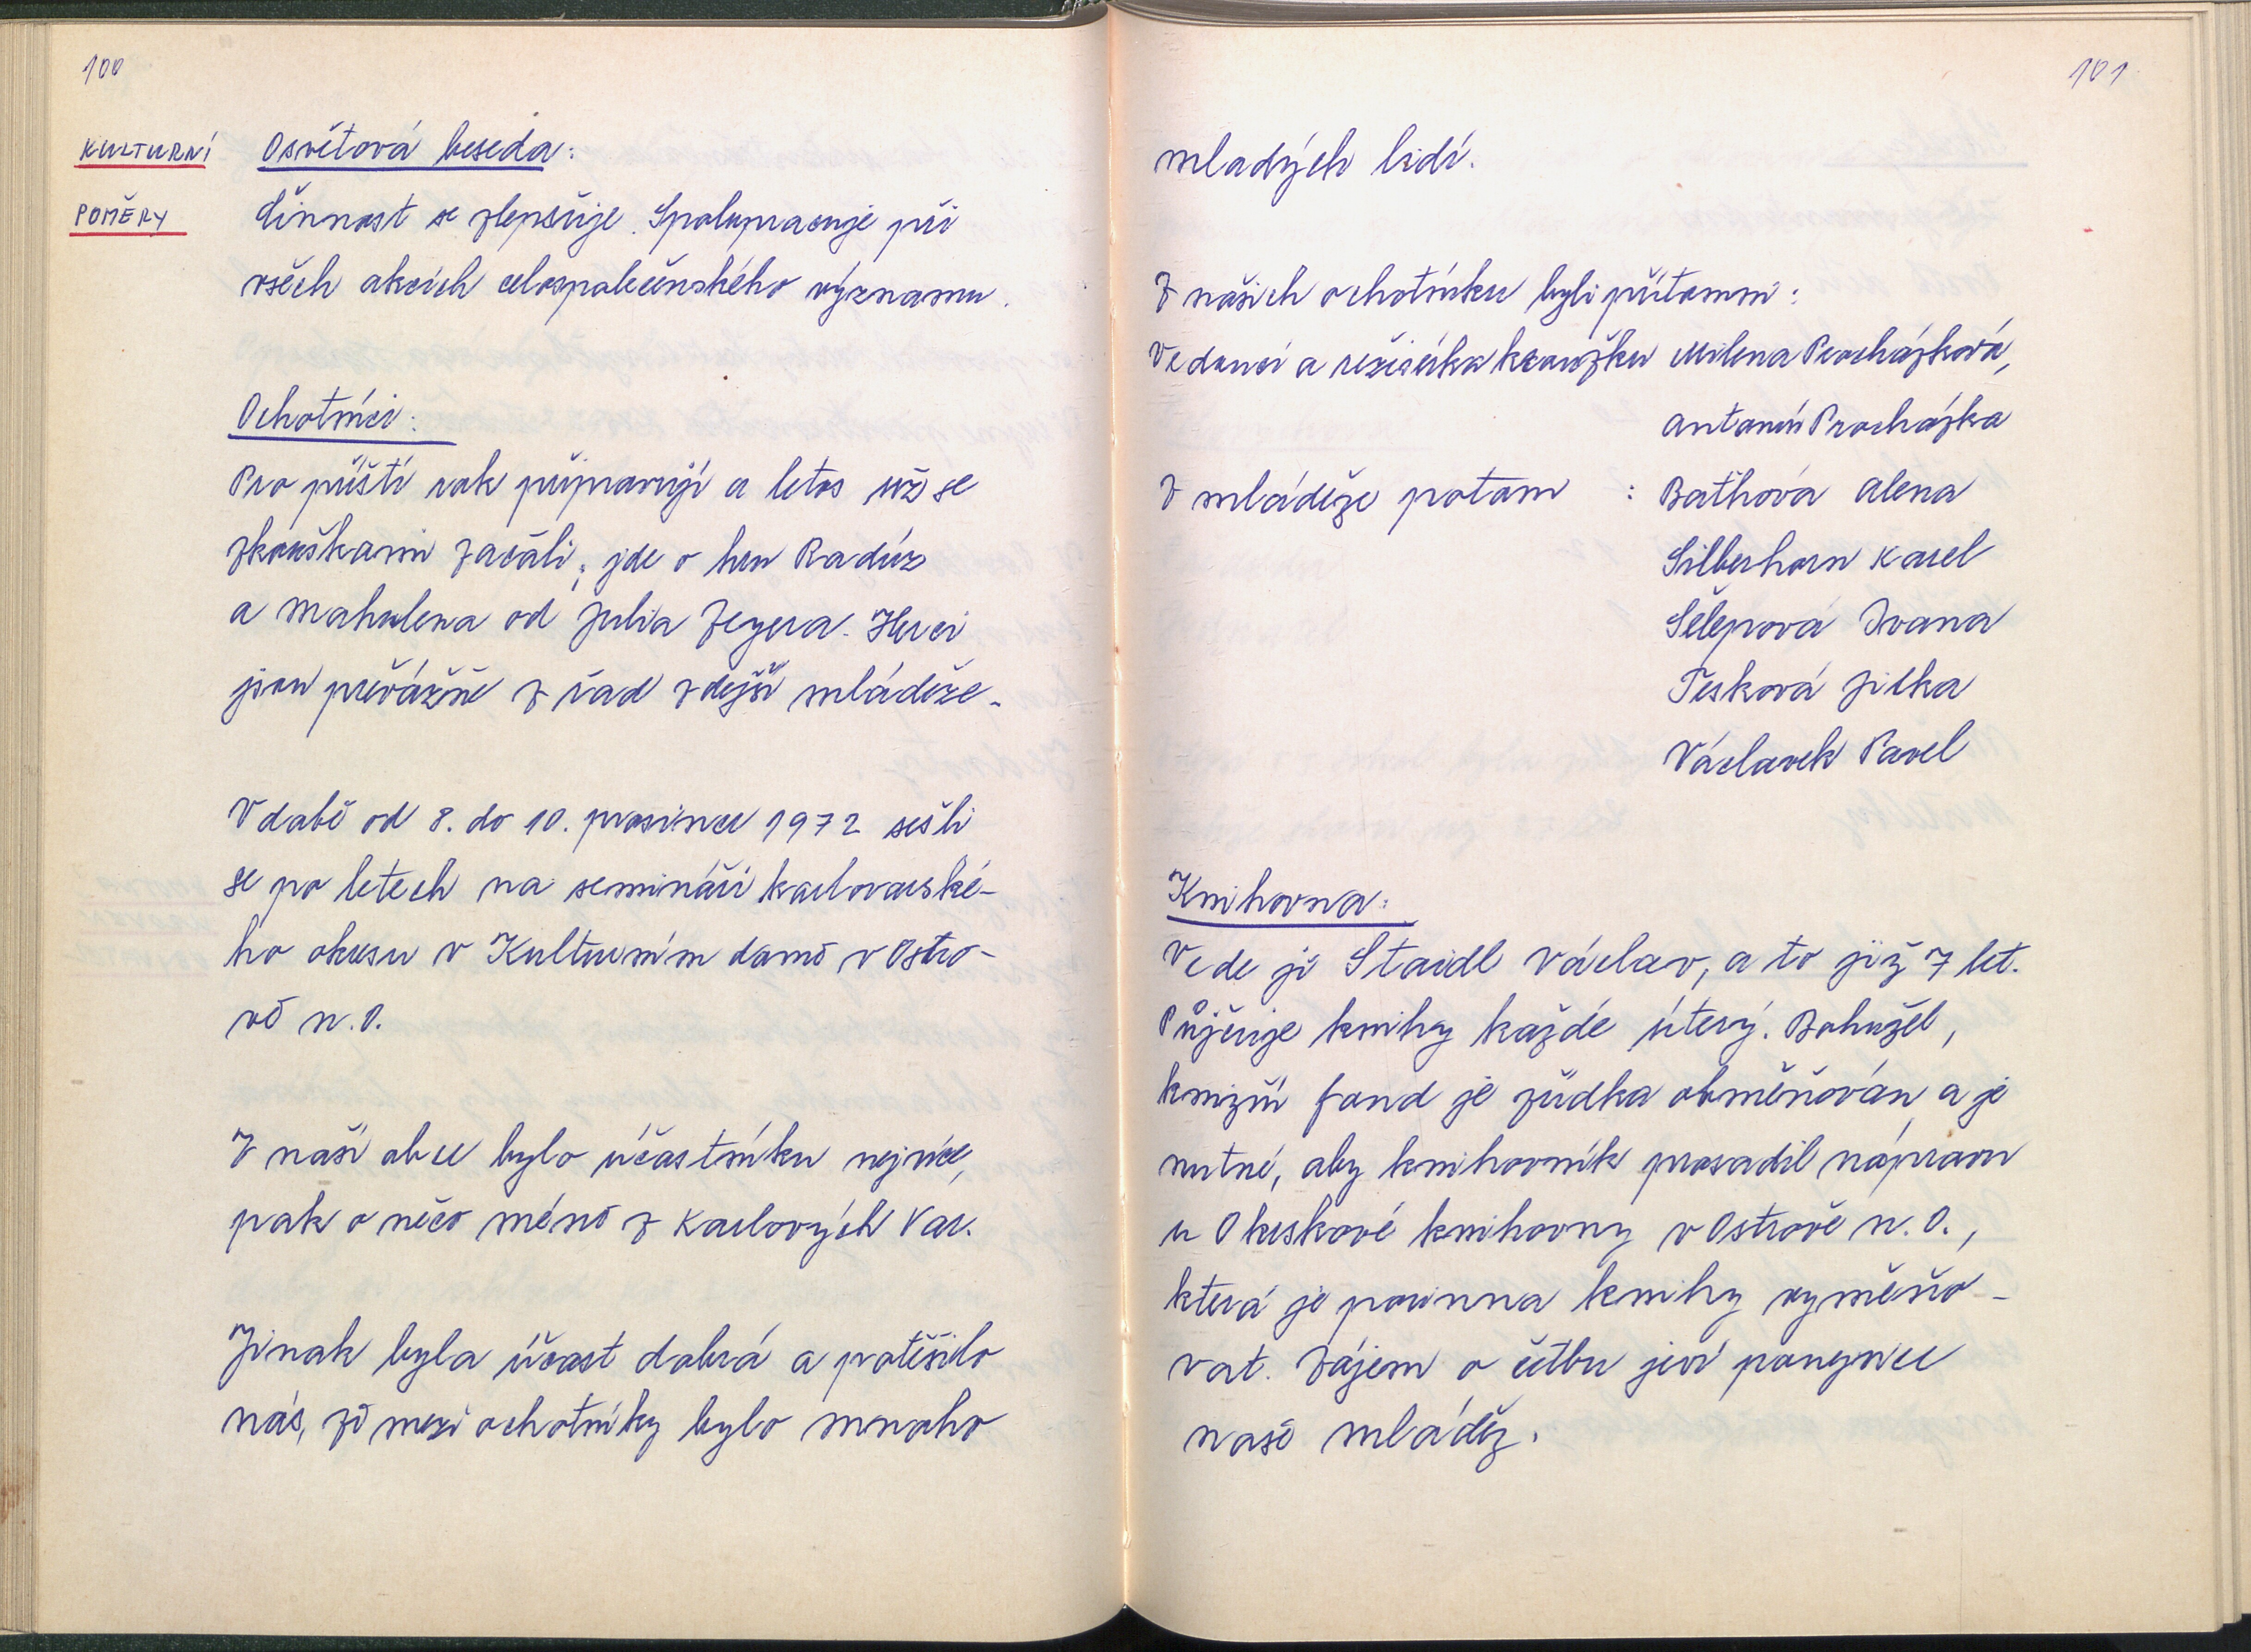 100
KULTURNÍ
POMĚRY
Osvětová beseda:
Činnost se zlepšuje. Spolupracuje při
všech akcích celospolečenského významu.
Ochotníci:
Pro příští rok připravují a letos už se
zkouškami začali; jde o hru Radúz
a Mahulena od Julia Zeyera. Herci
jsou převážně z řad zdejší mládeže.
V době od 8. do 10. prosince 1972 sešli
se po letech na semináři karlovarské-
ho okresu v Kulturním domě v Ostro-
vě n.O.
Z naší obce bylo účastníku nejvíce,
pak o něco méně z Karlových Var.
Jinak byla účast dobrá a potěšilo
nás, že mezi ochotníky bylo mnoho
101
mladých lidí.
Z našich ochotníku byli přítomni:
Vedoucí a režisérka kroužku Milena Procházková,
Antonín Procházka
Z mládeže potom : Baťhová Alena
Silberhorn Karel
Šélepová Ivana
Tesková Jitka
Václavek Pavel
Knihovna:
Vede ji Staidl Václav, a to již 7 let.
Půjčuje knihy každé úterý. Bohužel,
knižní fond je zřídka obměňován a je
nutné, aby knihovník prosadil nápravu
u Okrskové knihovny v Ostrově n.O.,
která je povinna knihy vyměňo-
vat. Zájem o četbu jeví ponejvíce
naše mládež.